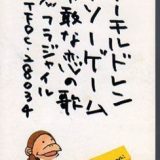 ーチルドレン
ソーゲーム
敢な恋の歌
フラジャイル
TFDC-28034